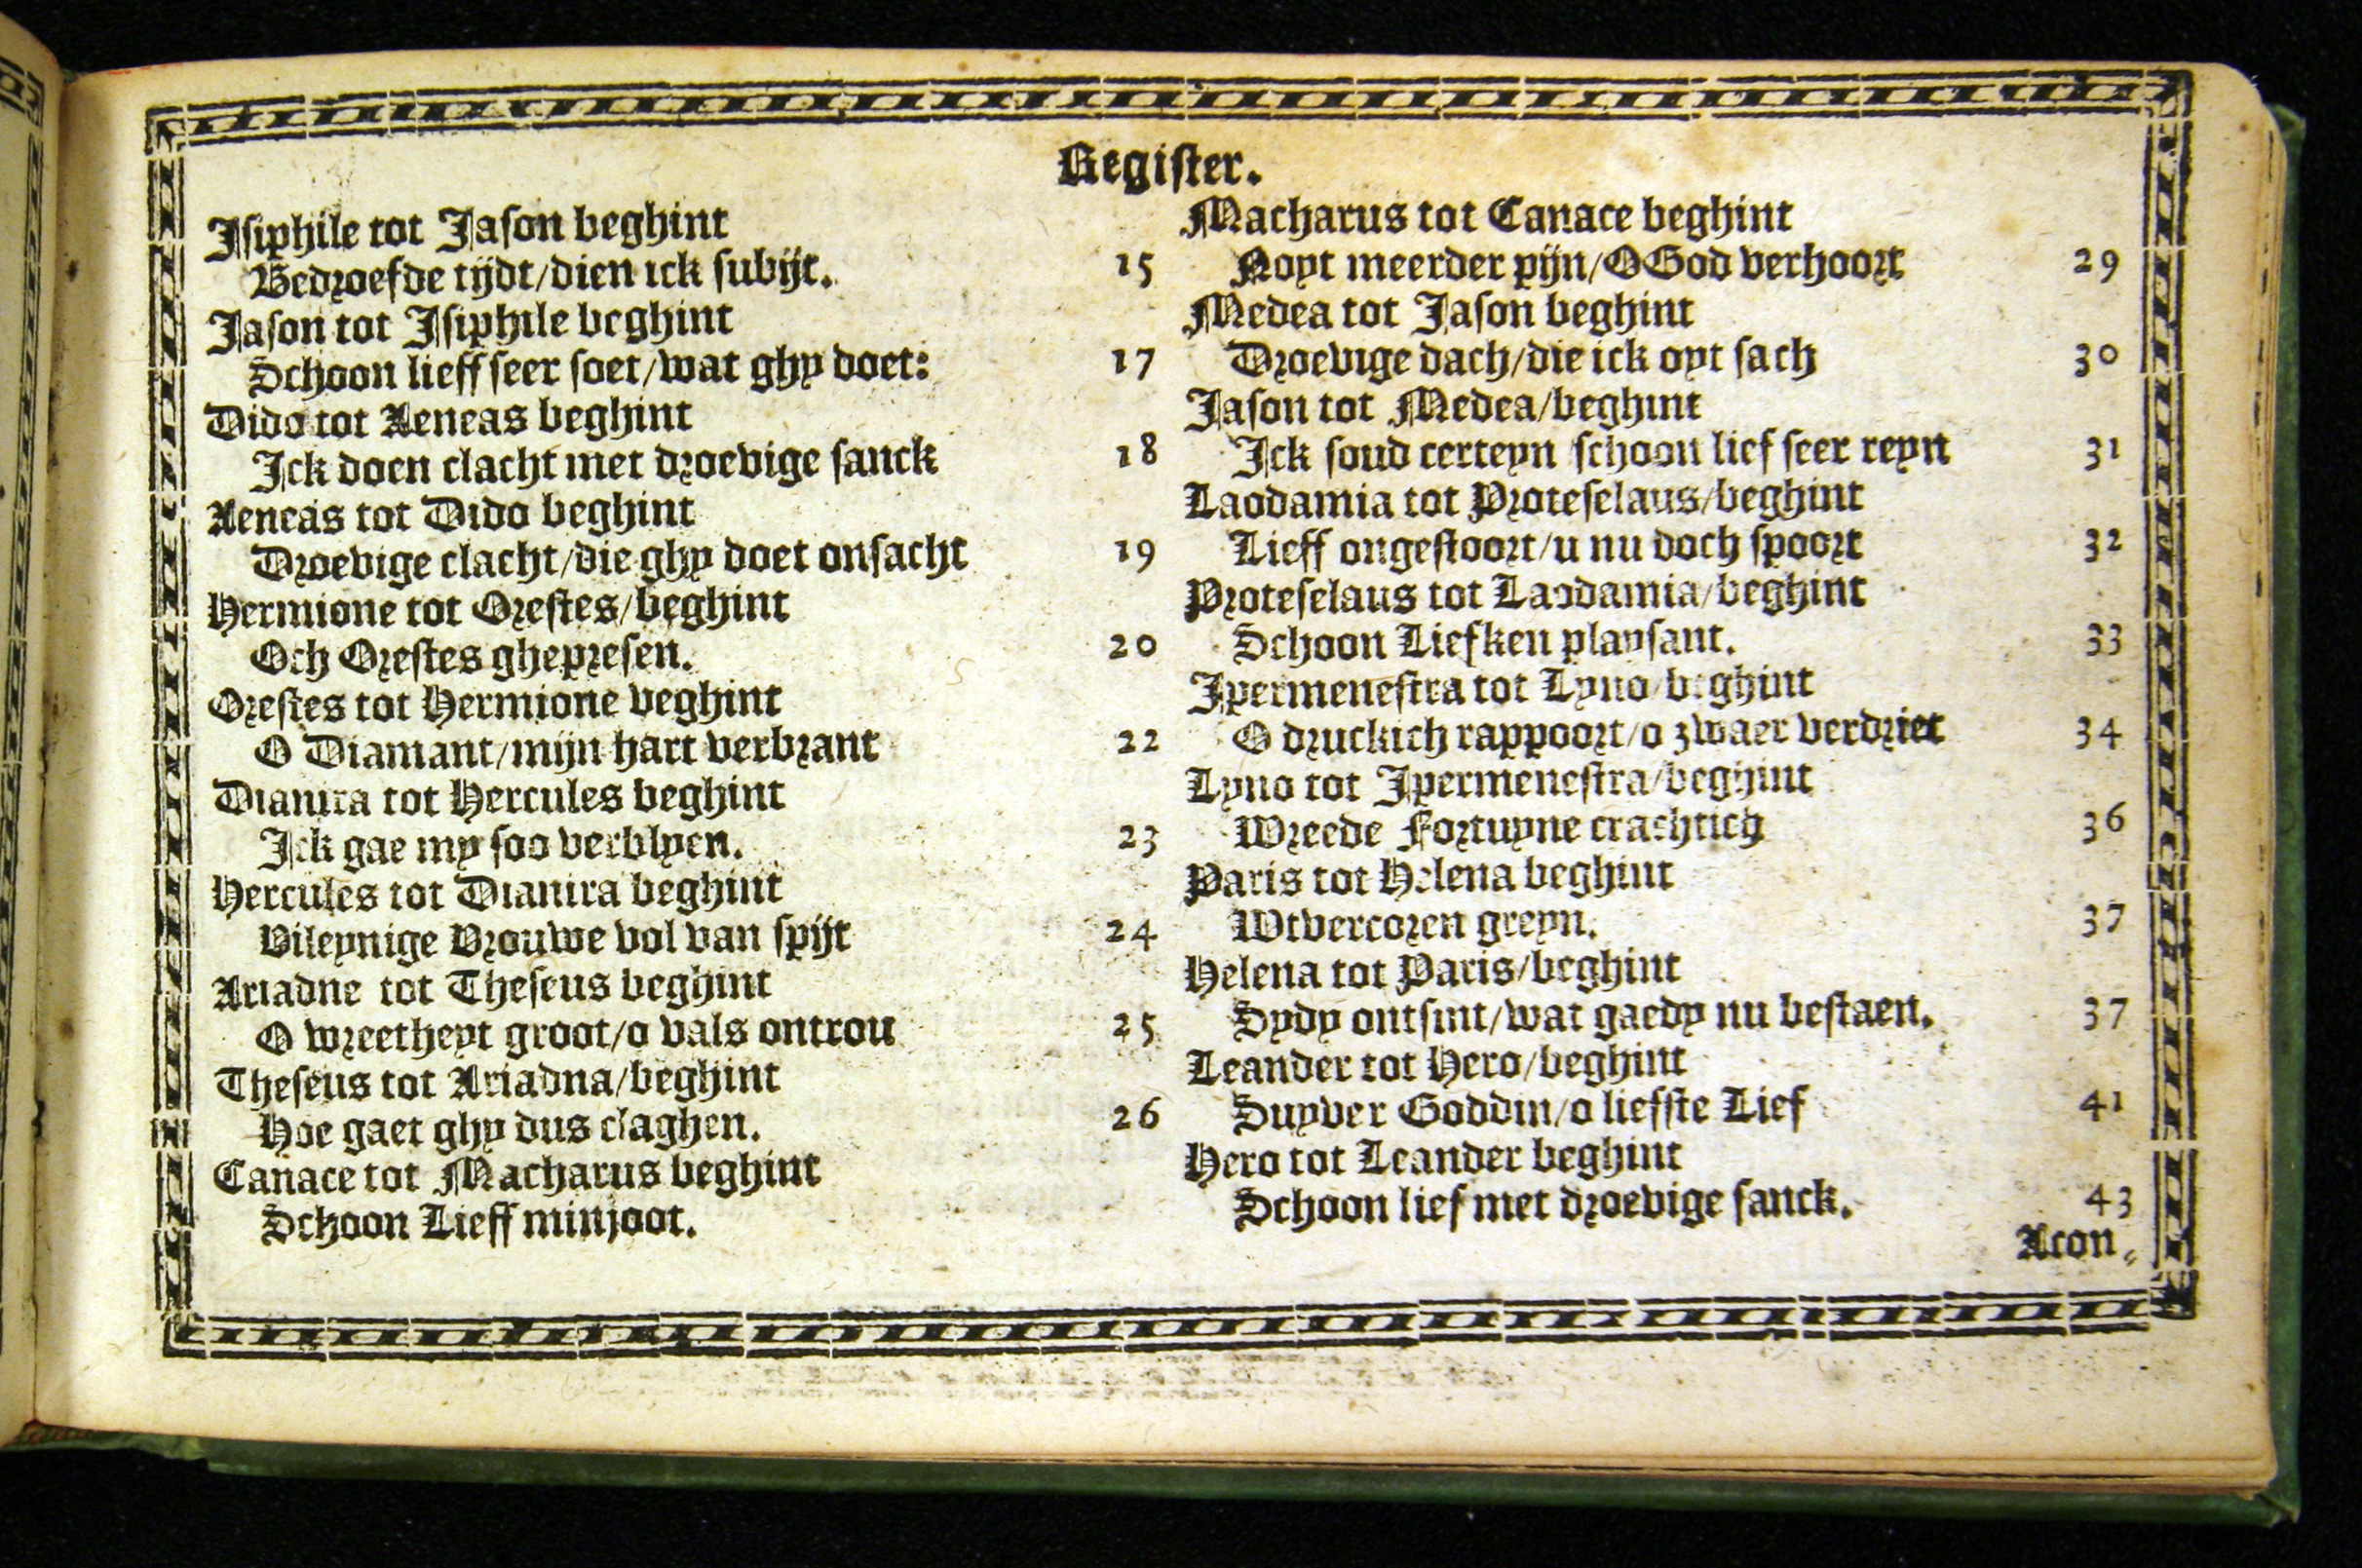 Register.
Isiphile tot Jason beghint
Bedroefde tijdt/dien ick subijt. 15
Jason tot Isiphile beghint
Schoon lieff seer soet/wat ghy doet: 17
Dido tot Aeneas beghint
Ick doen clacht met droevige sanck 18
Aeneas tot Dido beghint
Droevige clacht/die ghy doet onsacht 19
Hermione tot Orestes/beghint
Och Orestes ghepresen. 20
Orestes tot Hermione beghint
O Diamant/mijn hart verbrant 22
Dianira tot Hercules beghint
Ick gae my soo verblyen. 23
Hercules tot Dianira beghint
Vileynige Vrouwe vol van spijt 24
Ariadne tot Theseus beghint
O wreetheyt groot/o vals ontrou 25
Theseus tot Ariadna/beghint
Hoe gaet ghy dus claghen. 26
Canace tot Macharus beghint
Schoon Lieff minjoot.
Macharus tot Canace beghint
Noyt meerder pijn/O God verhoort 29
Medea tot Jason beghint
Droevige dach/die ick oyt sach 30
Jason tot Medea/beghint
Ick soud certeyn schoon lief seer reyn 31
Laodamia tot Proteselaus/beghint
Lieff ongestoort/u nu doch spoort 32
Proteselaus tot Laodamia/beghint
Schoon Liefken playsant. 33
Ipermenestra tot Lyno/beghint
O druckich rappoort/o zwaer verdriet 34
Lyno tot Ipermenestra/beghint
Wreede Fortuyne crachtich 36
Paris tot Helena beghint
Wtvercoren greyn. 37
Helena tot Paris/beghint
Sydy ontsint/wat gaedy nu bestaen. 37
Leander tot Hero/beghint
Suyver Goddin/o liefste Lief 41
Hero tot Leander beghint
Schoon lief met droevige sanck. 43
Acon-